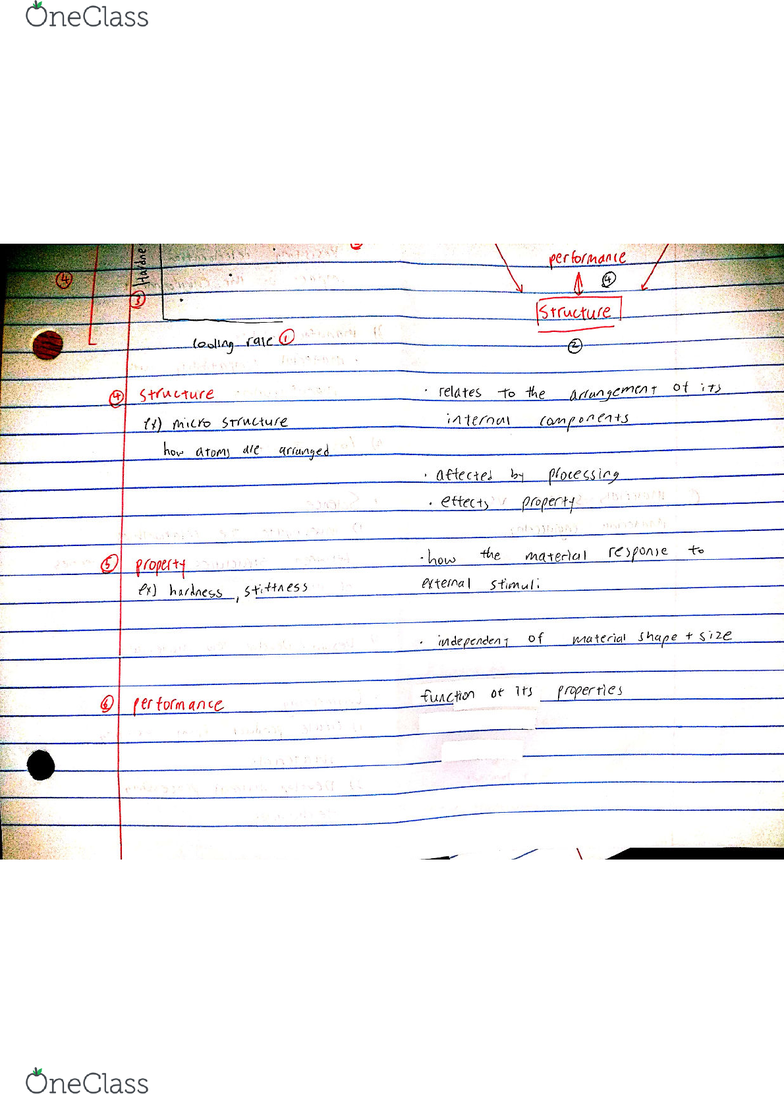 OneClass
performance
④
④
Hardne
③
Structure
②
cooling rate ①
④ structure
· relates to the arrangement of its
ex) micro structure
internal components
how atoms are arranged
· affected by processing
· effects property
⑤ property
· how the material response to
ex) hardness, stiffness
external stimuli
· independent of material shape + size
⑥ performance
function of its properties
OneClass